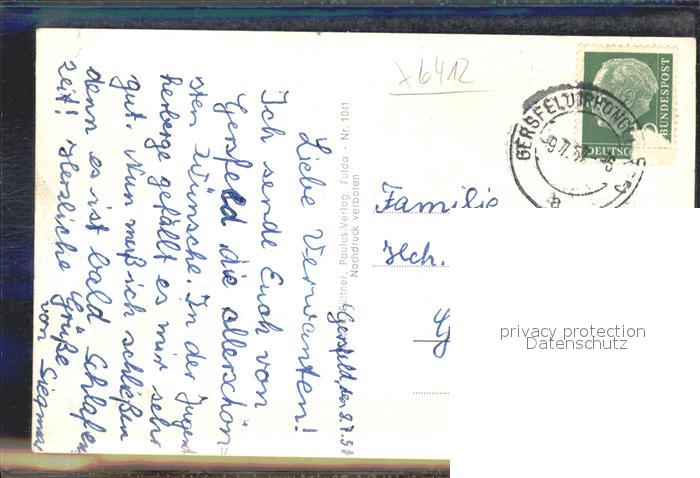 x6412
BUNDESPOST
GERSFELD (RHÖN)
Gersfeld, den 8.7.57
Liebe Verwanten!
Ich sende Euch von
Gersfeld die allerschön=
sten Wünsche. In der Jugend
herberge gefällt es mir sehr
gut. Nun muß ich schließen
denn es ist bald Schlafens
zeit! Herzliche Grüße
von Siegmar
Paulus-Verlag, Fulda - Nr. 1041
Nachdruck verboten
Familie
Hch.
privacy protection
Datenschutz